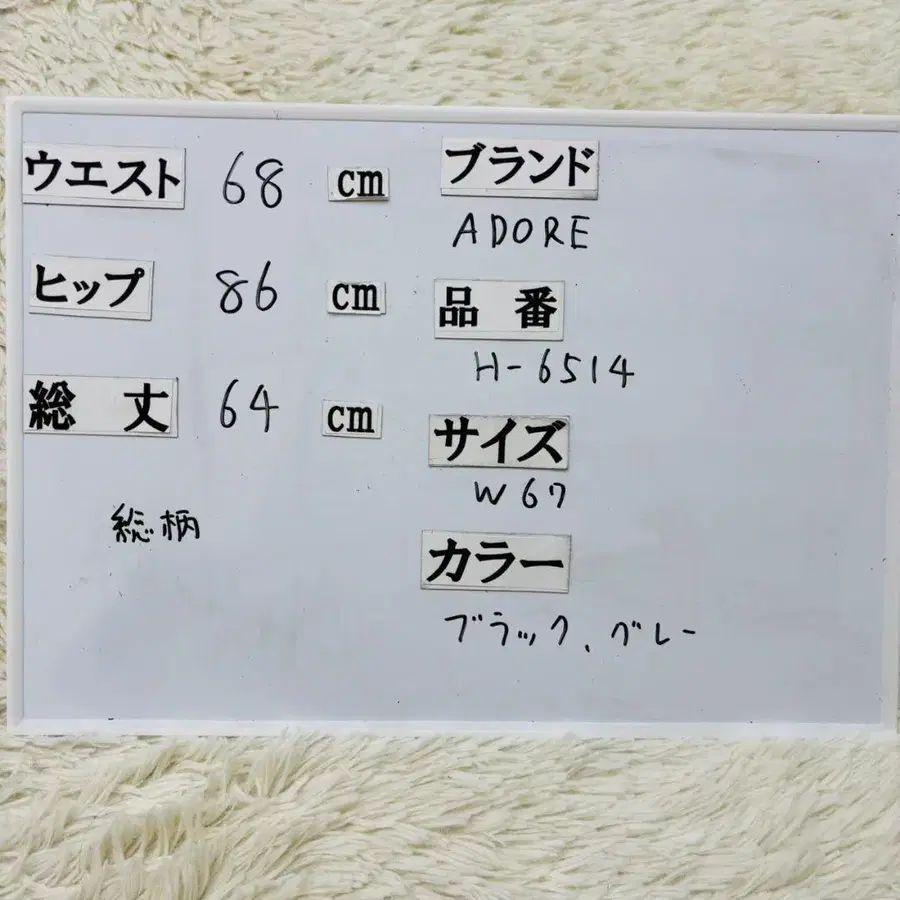 ウエスト 68 cm
ヒップ 86 cm
総丈 64 cm
総柄
ブランド
ADORE
品番
H-6514
サイズ
W67
カラー
ブラック、グレー